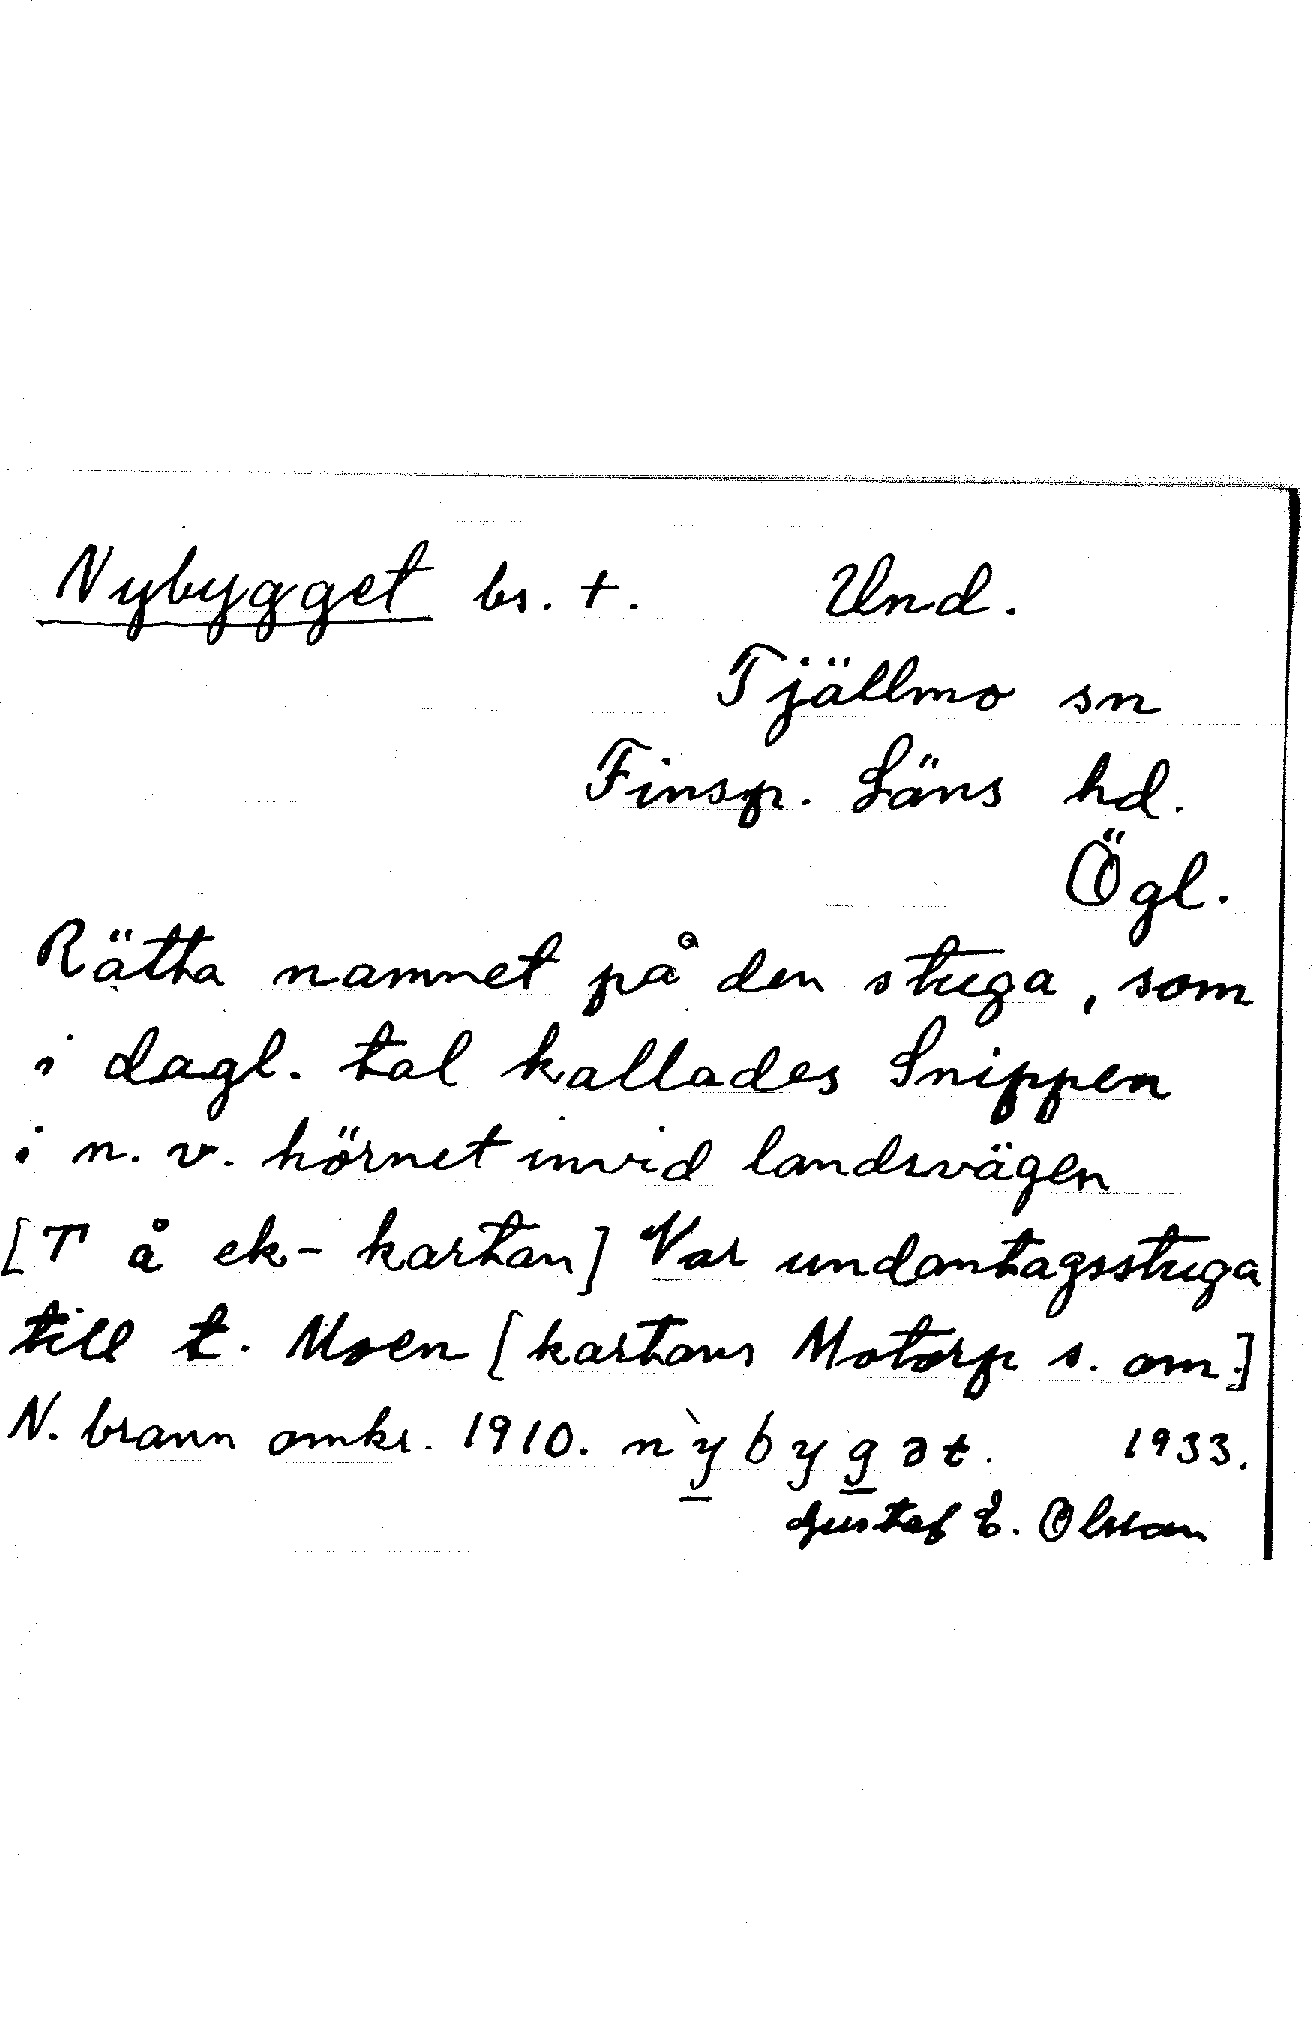 Nybygget bs. +. Und.
Tjällmo sn
Finsp. Läns hd.
Ögl.
Rätta namnet på den stuga, som
i dagl. tal kallades Snippen
i n. v. hörnet invid landsvägen
[T å ek-kartan] Var undantagsstuga
till t. Moen [kartans Motorp s. om.]
N. brann omkr. 1910. nỳbygət. 1933.
Gustaf E. Olsson